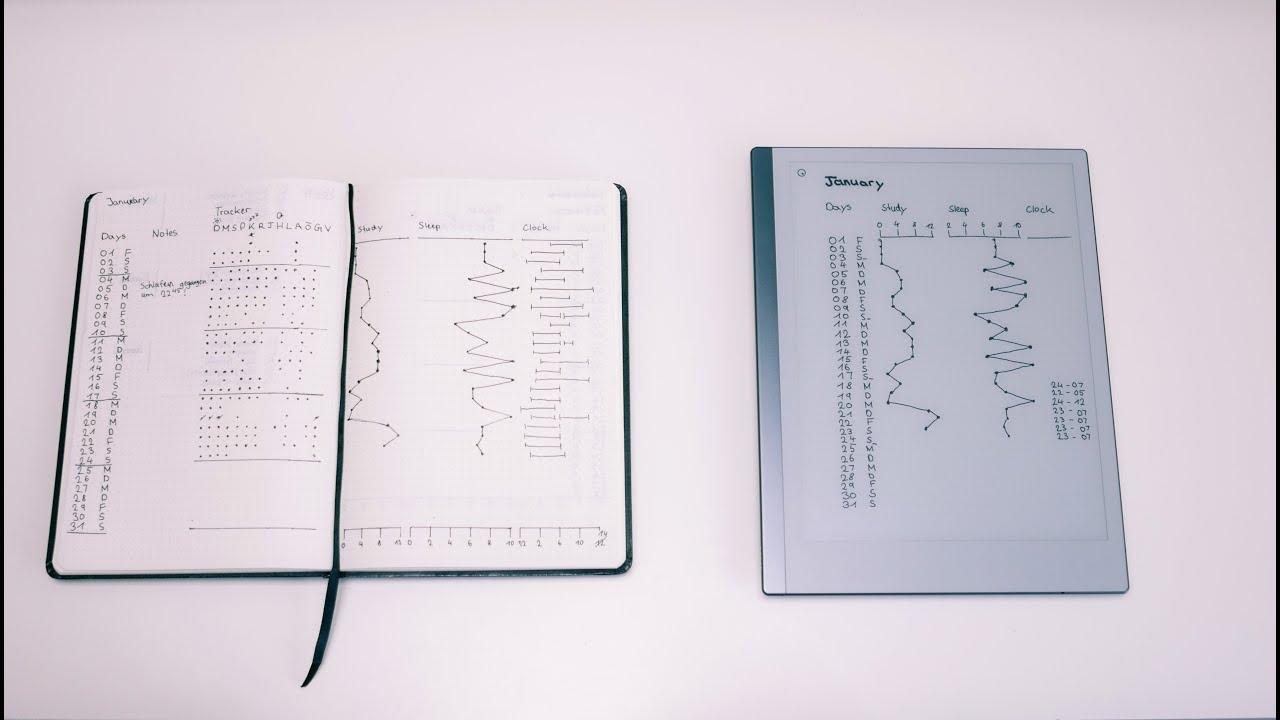 January
Tracker
Days Notes D M S D K R J H L A Ö G V
01 F
02 S
03 S
04 M Schlafen gegangen
05 D um 2245!
06 M
07 D
08 F
09 S
10 S
11 M
12 D
13 M
14 D
15 F
16 S
17 S
18 M
19 D
20 M
21 D
22 F
23 S
24 S
25 M
26 D
27 M
28 D
29 F
30 S
31 S
Study Sleep Clock
0 4 8 12 0 2 4 6 8 10 12 2 6 10 14
12
January
Days Study Sleep Clock
0 4 8 12 2 4 6 8 10
01 F
02 S
03 S
04 M
05 D
06 M
07 D
08 F
09 S
10 S
11 M
12 D
13 M
14 D
15 F
16 S
17 S
18 M 24-07
19 D 22-05
20 M 24-12
21 D 23-07
22 F 23-07
23 S 23-07
24 S 23-07
25 M
26 D
27 M
28 D
29 F
30 S
31 S